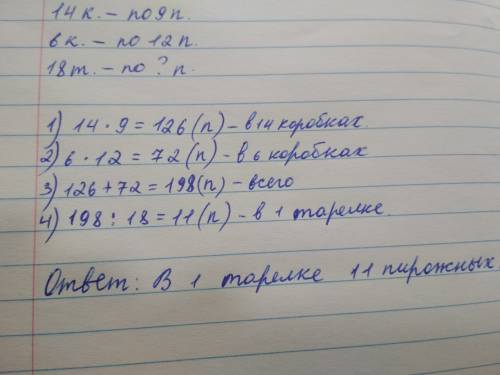 14 к. – по 9 п.
6 к. – по 12 п.
18 т. – по ? п.
1) 14 · 9 = 126 (п) – в 14 коробках.
2) 6 · 12 = 72 (п) – в 6 коробках
3) 126 + 72 = 198 (п) – всего
4) 198 : 18 = 11 (п) – в 1 тарелке.
Ответ: В 1 тарелке 11 пирожных